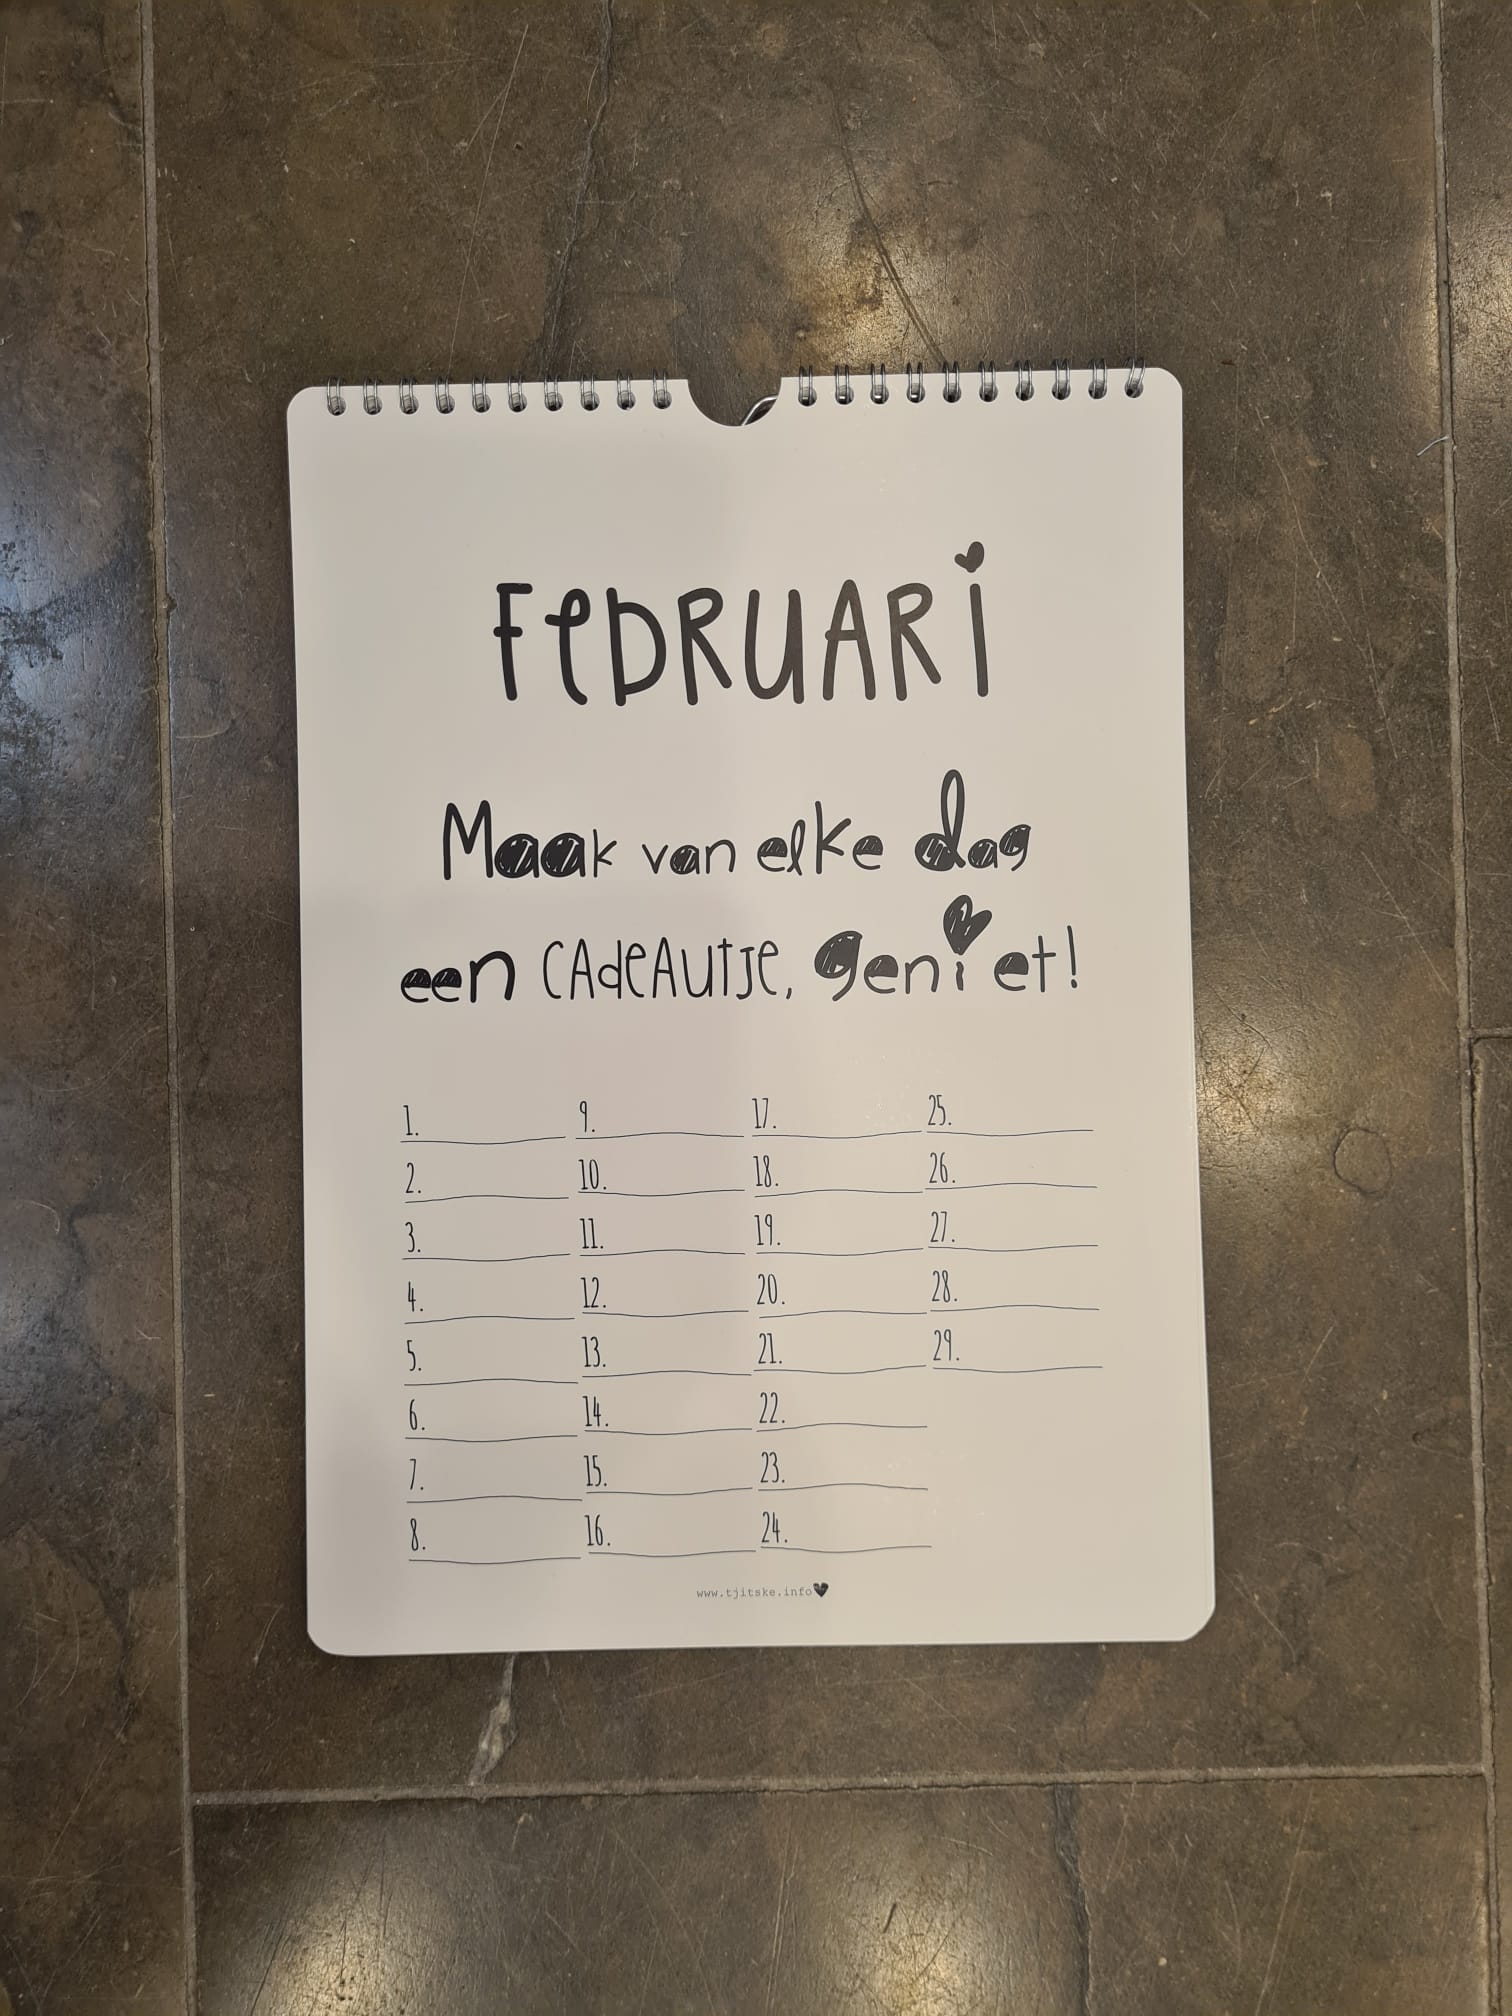 FeBRUARi
Maak van elke dag
een CAdeAUtJe, geniet!
1.
2.
3.
4.
5.
6.
7.
8.
9.
10.
11.
12.
13.
14.
15.
16.
17.
18.
19.
20.
21.
22.
23.
24.
25.
26.
27.
28.
29.
www.tjitske.info